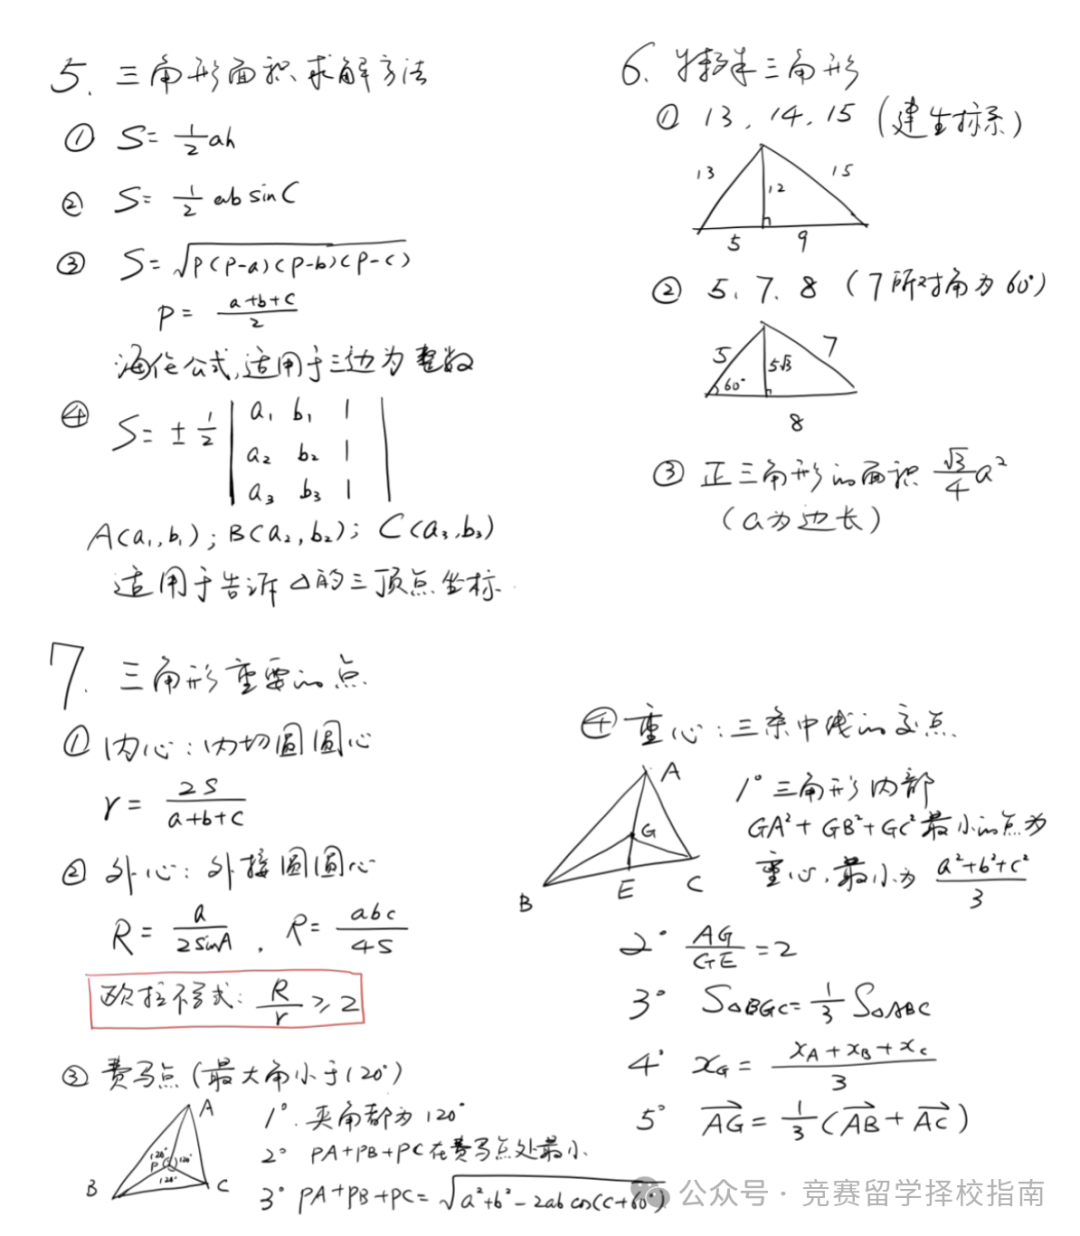 5. 三角形面积求解方法
① S= 1/2 ah
② S= 1/2 ab sinC
③ S=√(P(P-a)(P-b)(P-c))
P= (a+b+c)/2
海伦公式,适用于三边为整数
④ S= ± 1/2 | a₁ b₁ 1
a₂ b₂ 1
a₃ b₃ 1 |
A(a₁,b₁); B(a₂,b₂); C(a₃,b₃)
适用于告诉△的三顶点坐标.
6. 特殊三角形
① 13, 14, 15 (建坐标系)
13 12 15
5 9
② 5、7、8 (7所对角为60°)
5 5√3 7
60°
8
③ 正三角形的面积 √3/4 a²
(a为边长)
7. 三角形重要的点
① 内心: 内切圆圆心
r= 2S/(a+b+c)
② 外心: 外接圆圆心
R= a/(2sinA), R= abc/4S
欧拉不等式: R/r ≥2
③ 费马点 (最大角小于120°)
A
120° P 120°
120°
B C
1°. 夹角都为120°
2° PA+PB+PC在费马点处最小
3° PA+PB+PC=√(a²+b²-2ab cos(C+60°))
④ 重心: 三条中线的交点
A
G
B E C
1° 三角形内部
GA²+GB²+GC²最小的点为
重心, 最小为 (a²+b²+c²)/3
2° AG/GE =2
3° S△BGC= 1/3 S△ABC
4° x_G= (x_A+x_B+x_C)/3
5° AG→= 1/3 (AB→+AC→)
公众号 · 竞赛留学择校指南